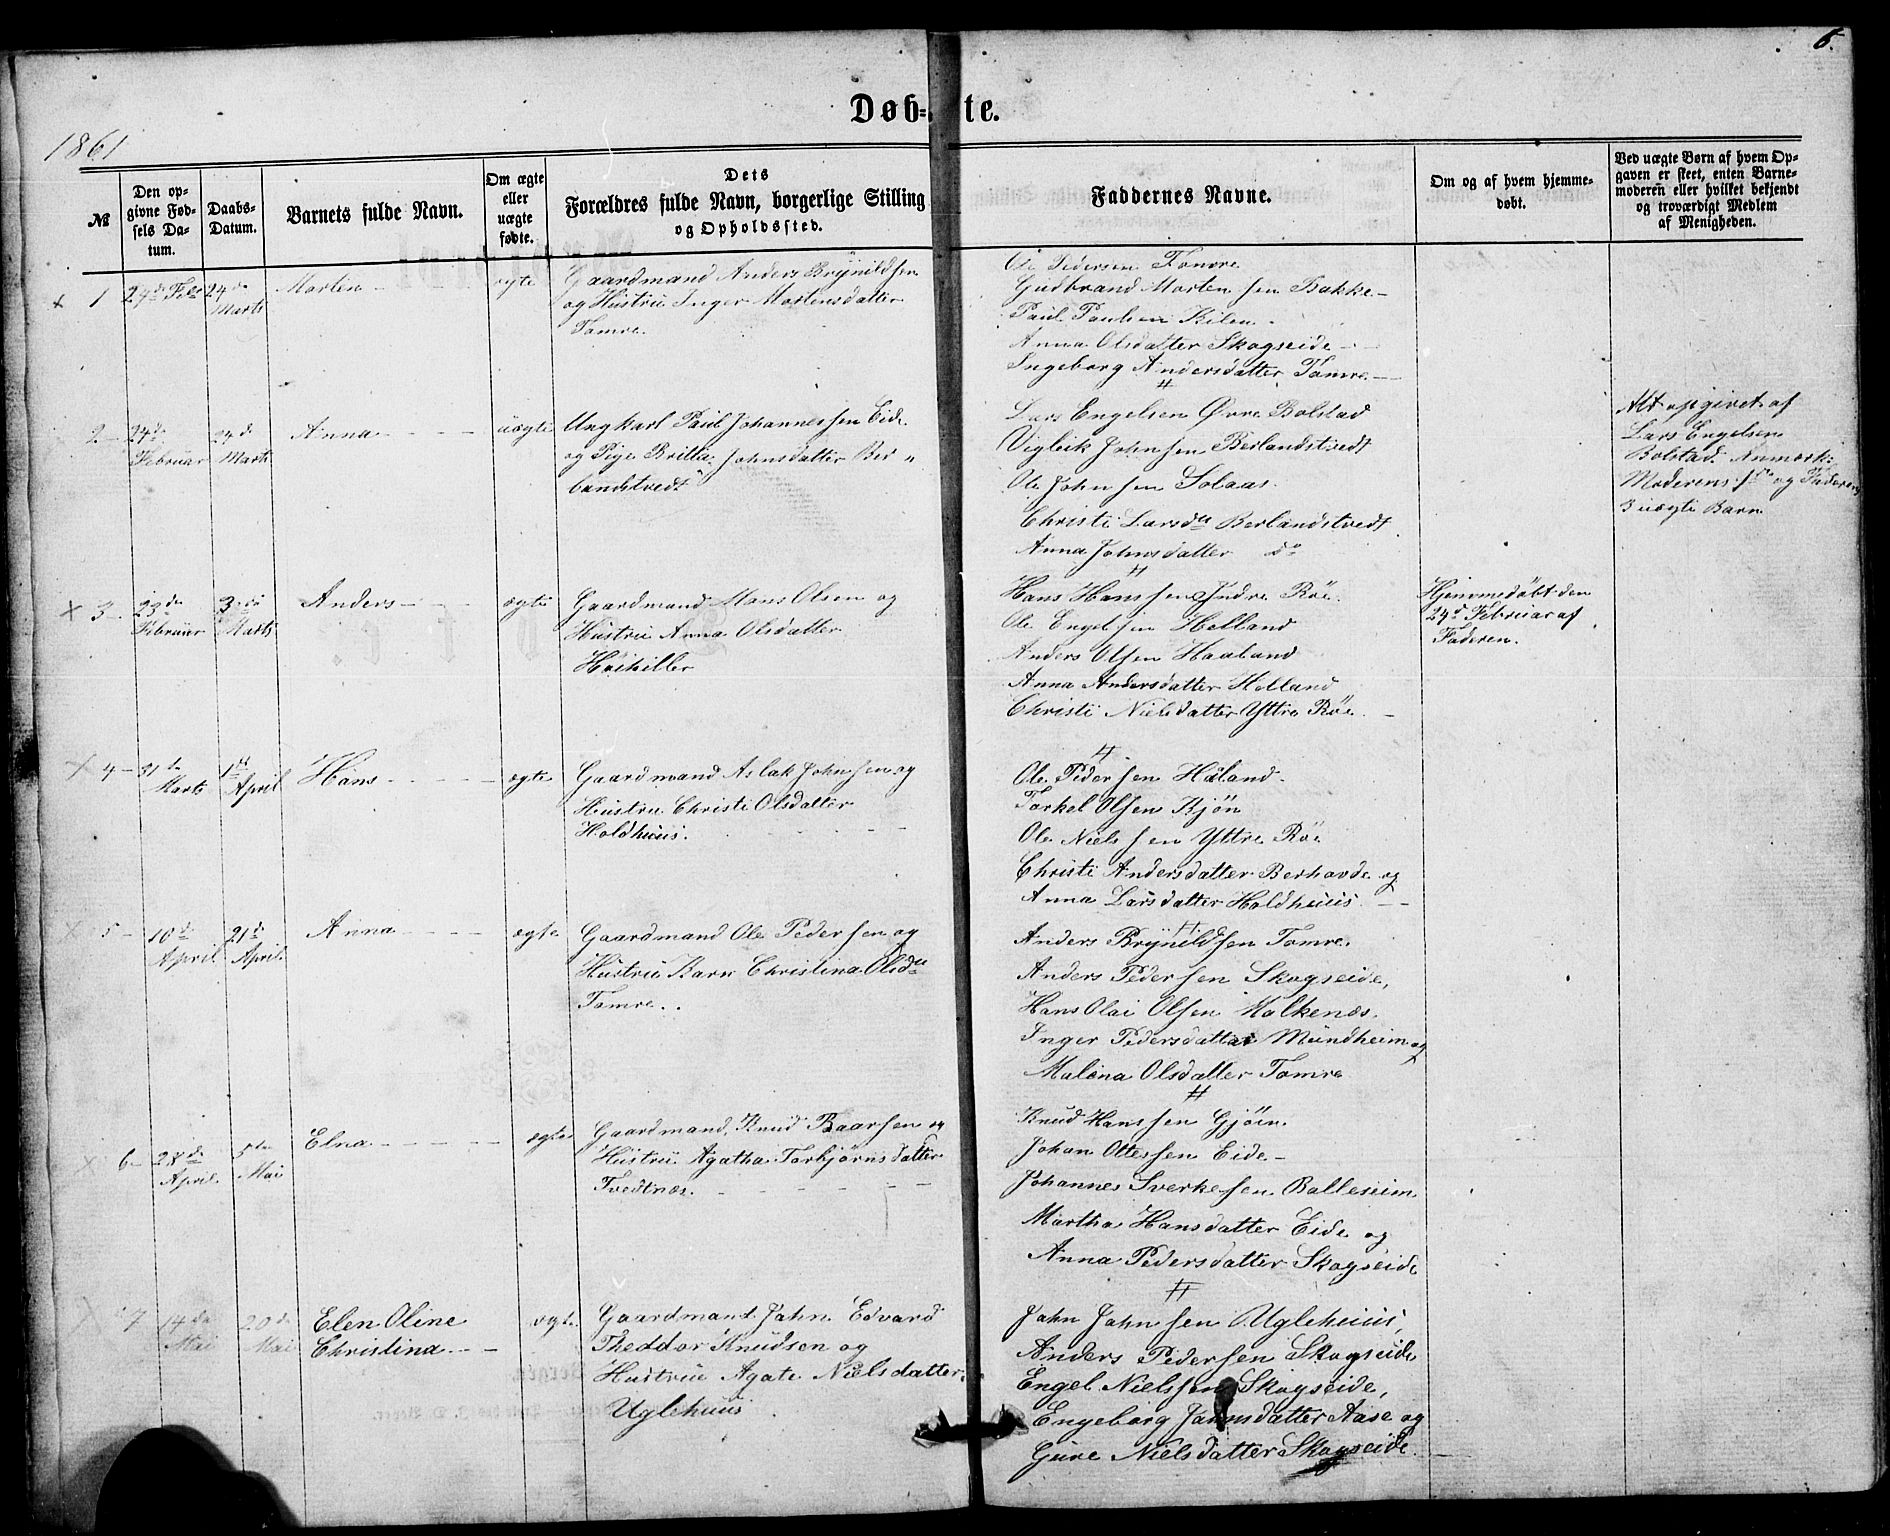 6.
Døb-te.
1861
№
Den op-
givne Fød-
sels Da-
tum.
Daabs-
Datum.
Barnets fulde Navn.
Om ægte
eller
uægte
fødte.
Dets
Forældres fulde Navn, borgerlige Stilling
og Opholdssted.
Faddernes Navne.
Om og af hvem hjemme-
døbt.
Ved uægte Børn af hvem Op-
gaven er skeet, enten Barne-
moderen eller hvilket bekjendt
og troværdigt Medlem
af Menigheden.
x 1
24de Feb
24de
Marts
Morten
ægte
Gaardmand Anders Brynildsen
og Hustru Inger Mortensdatter
Tomre.
Ole Pedersen Tomre
Gudbrand Mortensen Bakke
Paul Paulsen Kilen
Anna Olsdatter Skogseide
Ingeborg Andersdatter Tomre
#
2
24d
Februar
24d
Marts
Anna
uægte
Ungkarl Paul Johannessen Eide
og Pige Britta Johnsdatter Ber„
landstvedt
Lars Engelsen Øvre Bolstad
Vigleik Johnsen Berlandstvedt
Ole Johnsen Solaas.
Christi Larsdtr Berlandstvedt
Anna Johnsdatter do
#
Alt opgivet af
Lars Engelsen
Bolstad. Anmærk:
Moderens 1ste og Faderens
3 uægte Barn
x 3.
23de
Februar
3die
Marts
Anders
ægte
Gaardmand Mons Olsen og
Hustru Anna Olsdatter
Høihiller
Hans Hanssen Indre Røe.
Ole Engelsen Helland
Anders Olsen Haaland
Anna Andersdatter Helland
Christi Nielsdatter Yttre Røe.
#
Hjemmedøbt den
24d Februar af
Faderen.
x 4
31te
Marts
1ste
April
Hans
ægte
Gaardmand Aslak Johnsen og
Hustru Christi Olsdatter
Holdhuus.
Ole Pedersen Håland.
Torkel Olsen Kjøn
Ole Nielssen Yttre Røe
Christi Andersdatter Berhovde og
Anna Larsdatter Holdhuus.
#
x 5
10de
April
21de
April.
Anna
ægte
Gaardmand Ole Pedersen og
Hustru Karn Christina Olsdtr
Tomre.
Anders Brynildsen Tomre.
Anders Pedersen Skogseide,
Hans Olai Olsen Malkenæs.
Inger Pedersdatter Mundheim og
Malena Olsdatter Tomre
#
x 6
28de
April.
5te
Mai
Elna
ægte
Gaardmand Knud Baarsen og
Hustru Agatha Torbjørnsdatter
Tvedtnæs.
Knud Hanssen Gjøen.
Johan Ottessen Eide
Johannes Sverkesen Balleseim
Martha Hansdatter Eide og
Anna Pedersdatter Skogseide
#
x 7
14de
Mai
20de
Mai
Elen Oline
Christina
ægte
Gaardmand John Edvard
Theddor Knudsen og
Hustrue Agate Nielsdatter
Uglehuus
John Johnsen Uglehuus,
Anders Pedersen Skogseide
Engel Nielssen Skogseide,
Engeborg Johnsdatter Aase og
Gure Nielsdatter Skogseide